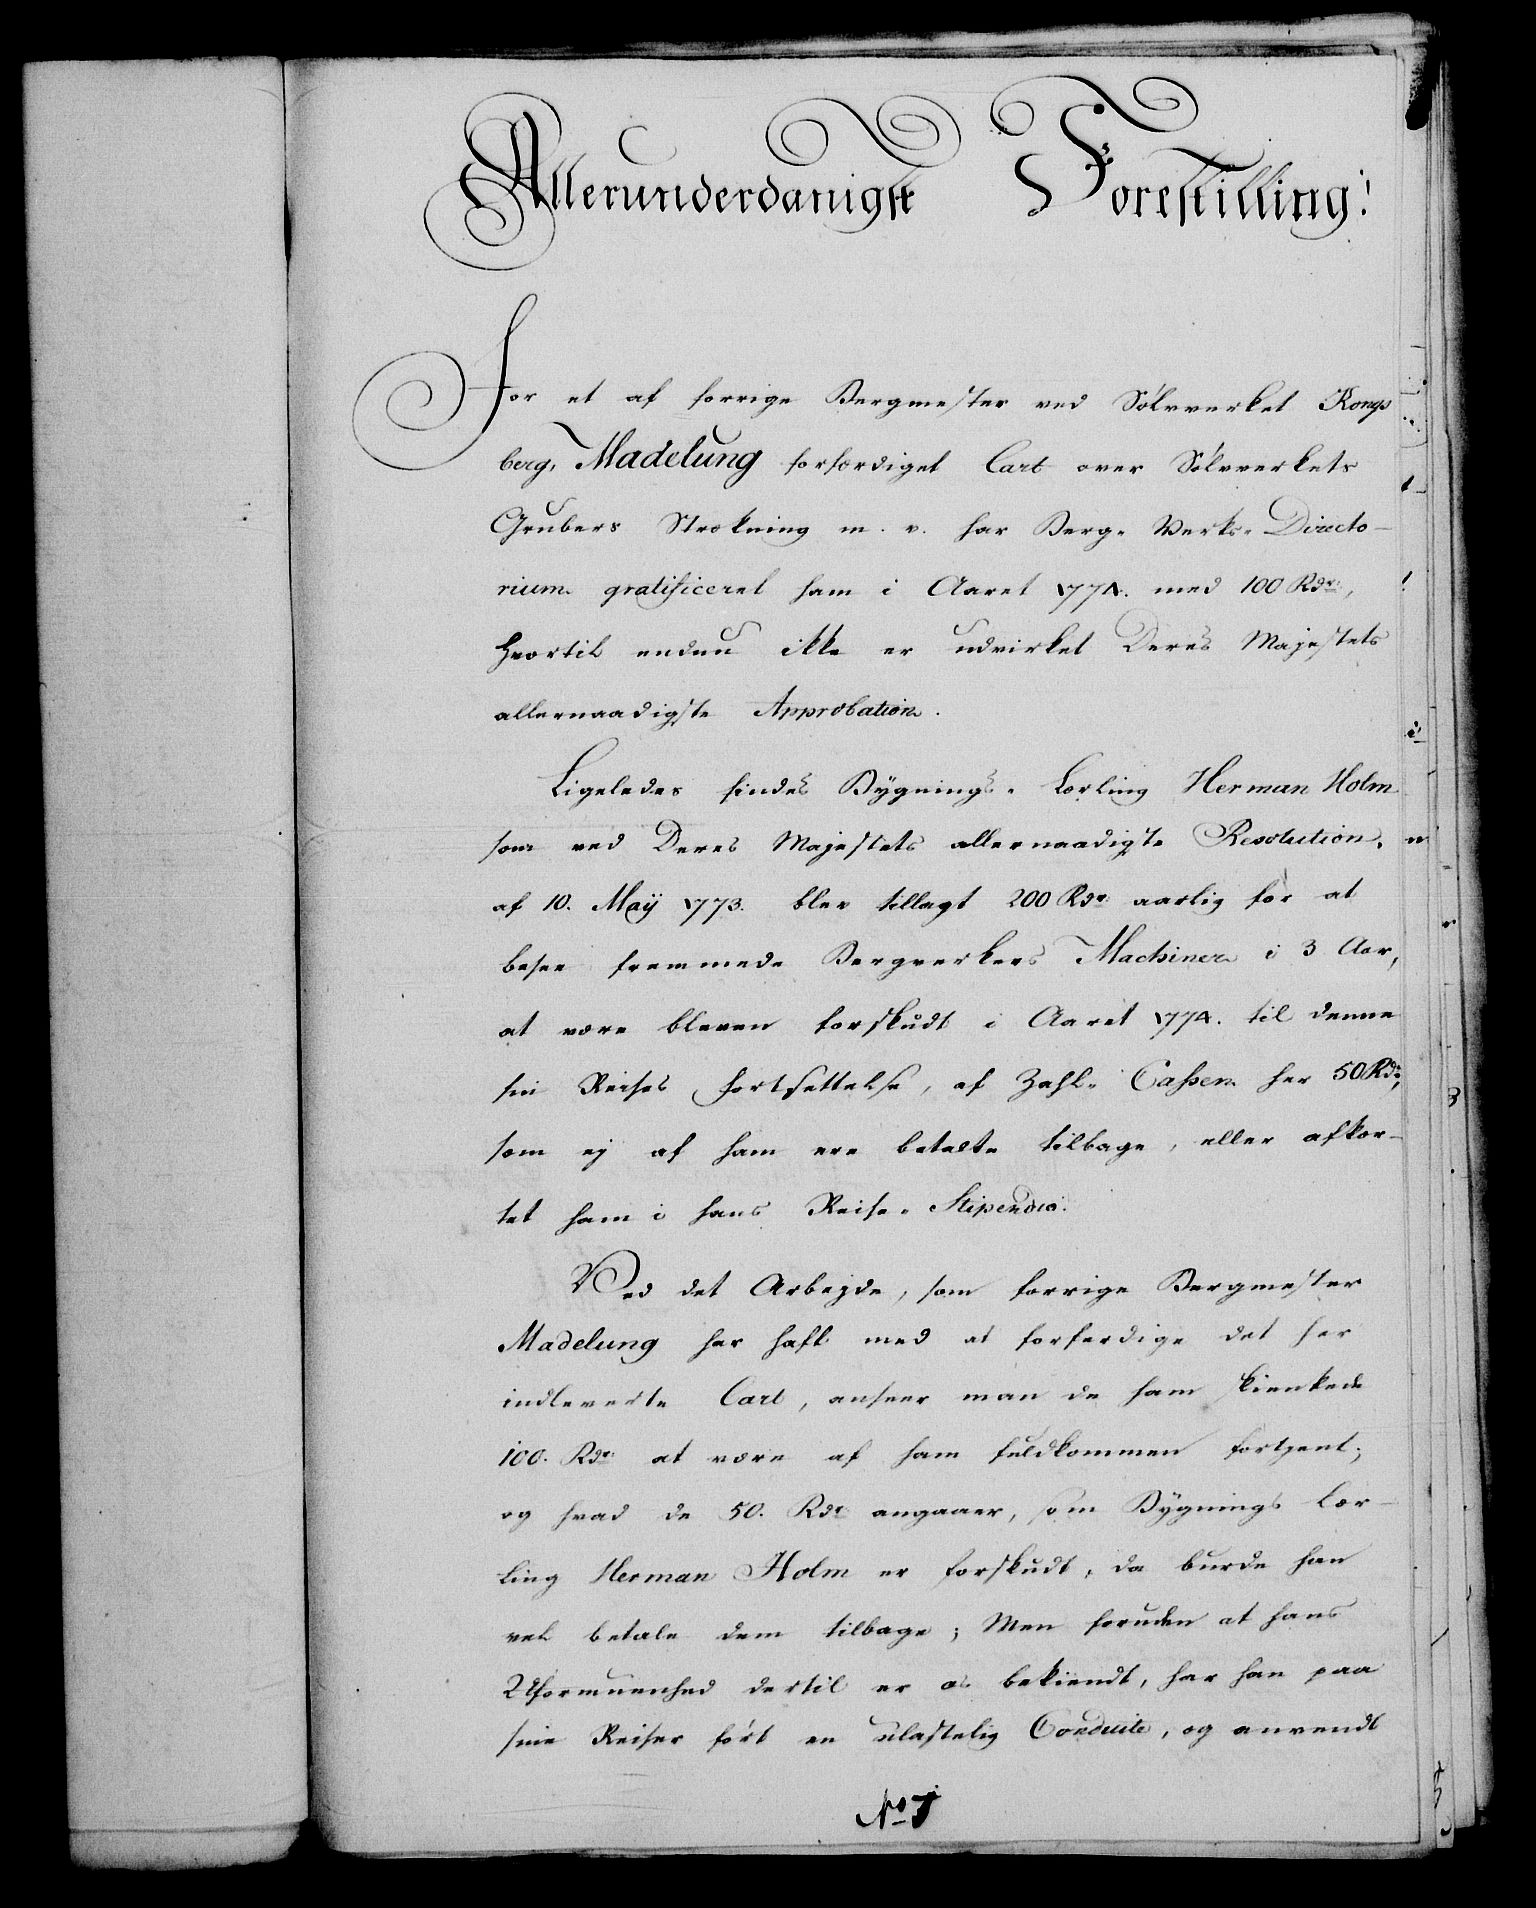 Allerunderdanigst Forestilling!
For et af forrige Bergmester ved Sølvverket Kongs
berg, Madelung forfærdiget Cart over Sølvverkets
Grubers Strekning m. v. har Berg- Verks- Directo-
rium gratificeret ham i Aaret 1774. med 100 Rdr,
hvortil endnu ikke er udvirket Deres Majestets
allernaadigste Approbation.
Ligeledes findes Bygnings- Lærling Herman Holm
som ved Deres Majestets allernaadigste Resolution,
af 10. Maÿ 1773. blev tillagt 200 Rdr aarlig for at
besee fremmede Bergverkers Machiner i 3 Aar,
at være bleven forskudt i Aaret 1774. til denne
sin Reises Fortsettelse, af Zahl- Cassen her 50 Rdr,
som ej af ham ere betalte tilbage, eller afkor-
tet ham i hans Reise- Stipendio.
Ved det Arbejde, som forrige Bergmester
Madelung har haft med at forferdige det her
indleverte Cart, anseer man de ham skienkede
100. Rdr at være af ham fuldkommen fortjent;
og hvad de 50. Rdr angaaer, som Bygnings Lær-
ling Herman Holm er forskudt, da burde han
vel betale dem tilbage; Men foruden at hans
Uformuenhed dertil er os bekiendt, har han paa
sine Reiser ført en ulastelig Conduite, og anvendt
No 7